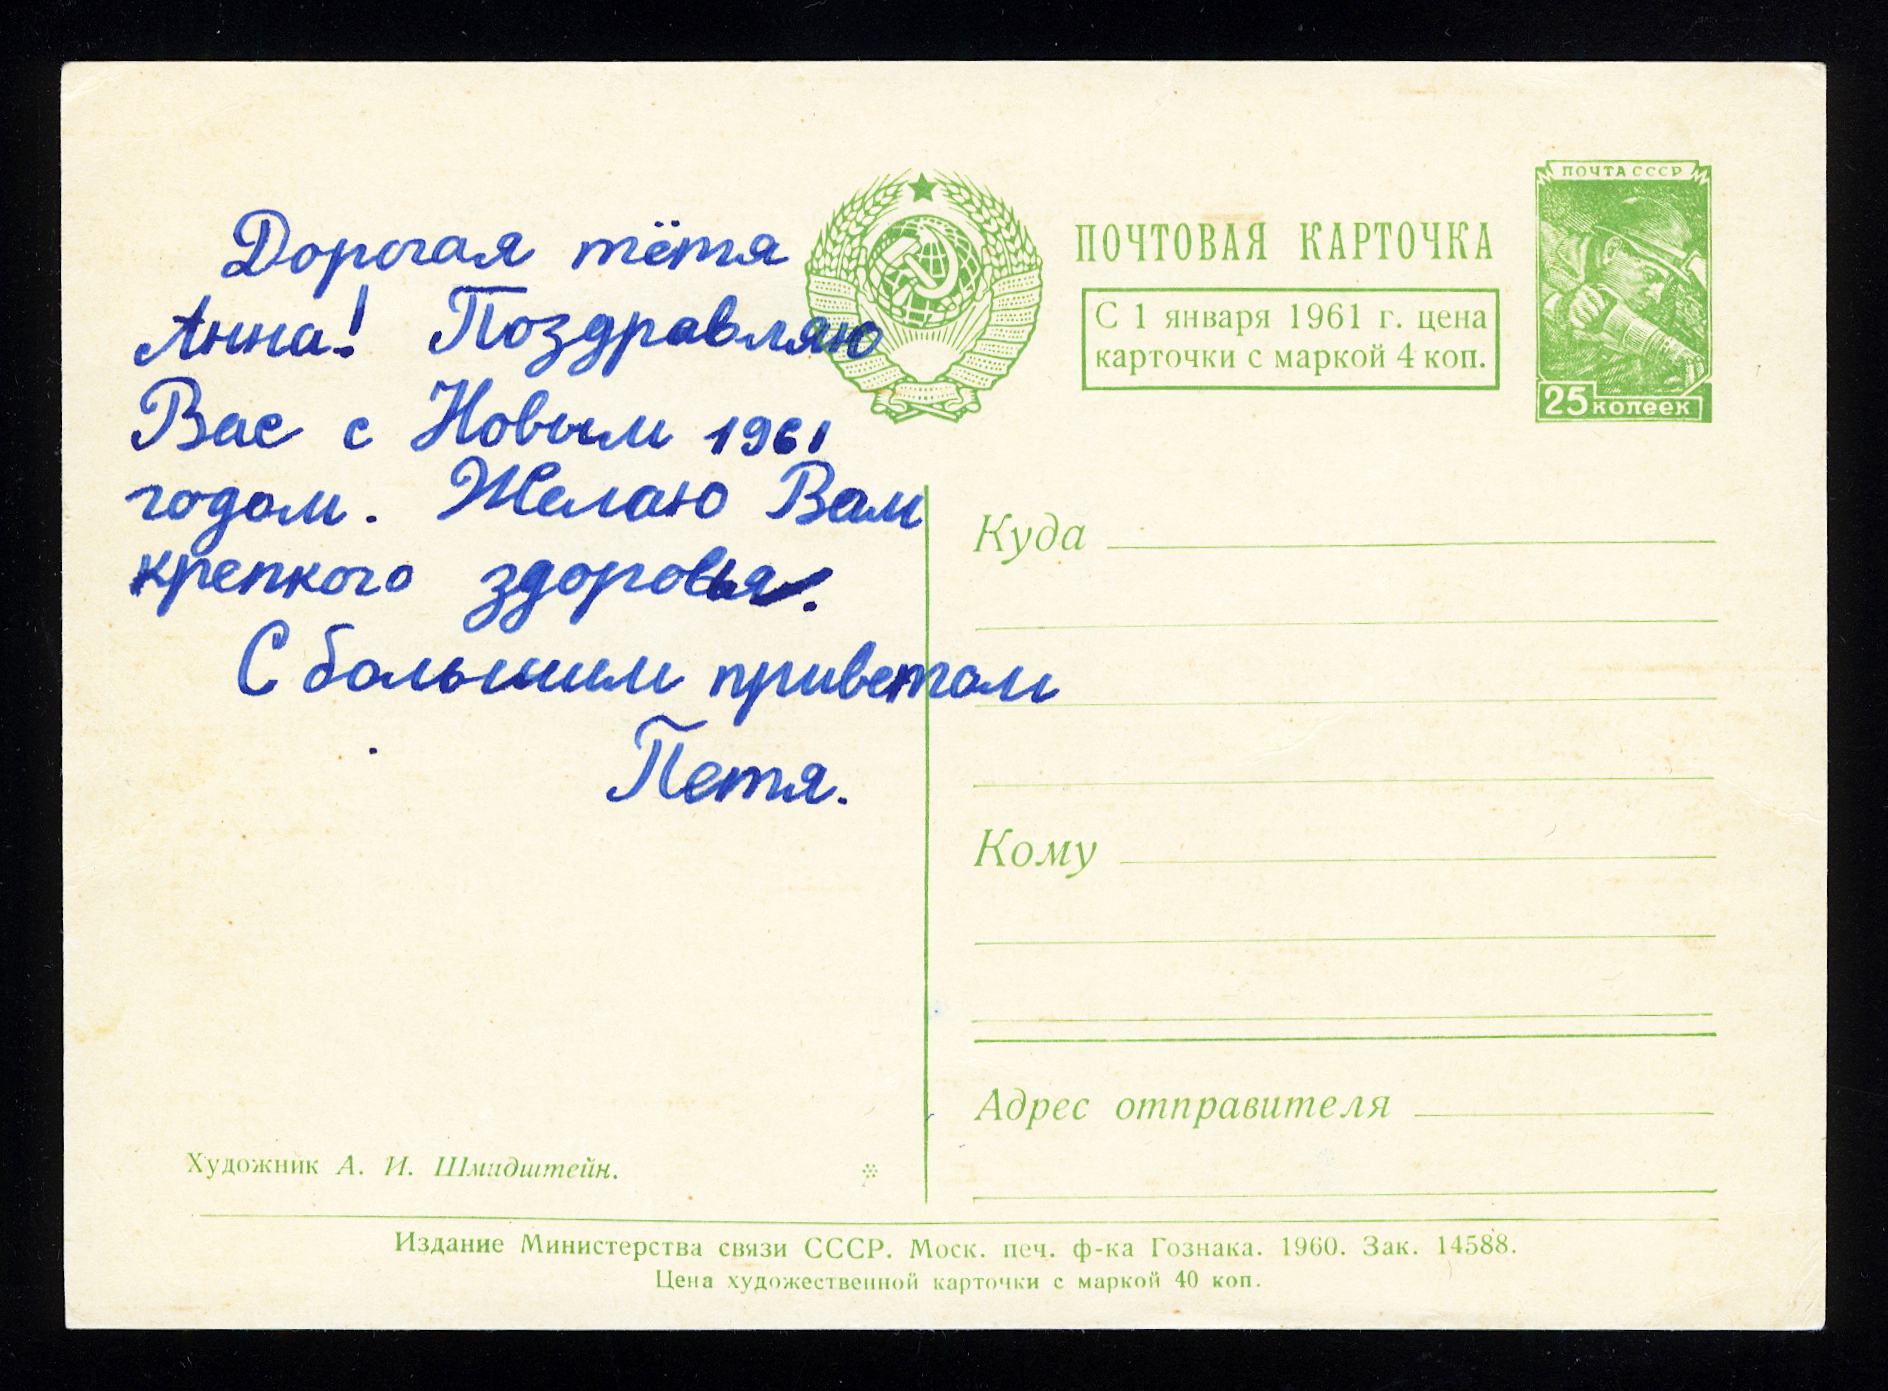 Дорогая тётя
Анна! Поздравляю
Вас с Новым 1961
годом. Желаю Вам
крепкого здоровья.
С большим приветом
Петя.
ПОЧТОВАЯ КАРТОЧКА
С 1 января 1961 г. цена
карточки с маркой 4 коп.
ПОЧТА СССР
25 копеек
Куда
Кому
Адрес отправителя
Художник А. И. Шмидштейн.
Издание Министерства связи СССР. Моск. печ. ф-ка Гознака. 1960. Зак. 14588.
Цена художественной карточки с маркой 40 коп.